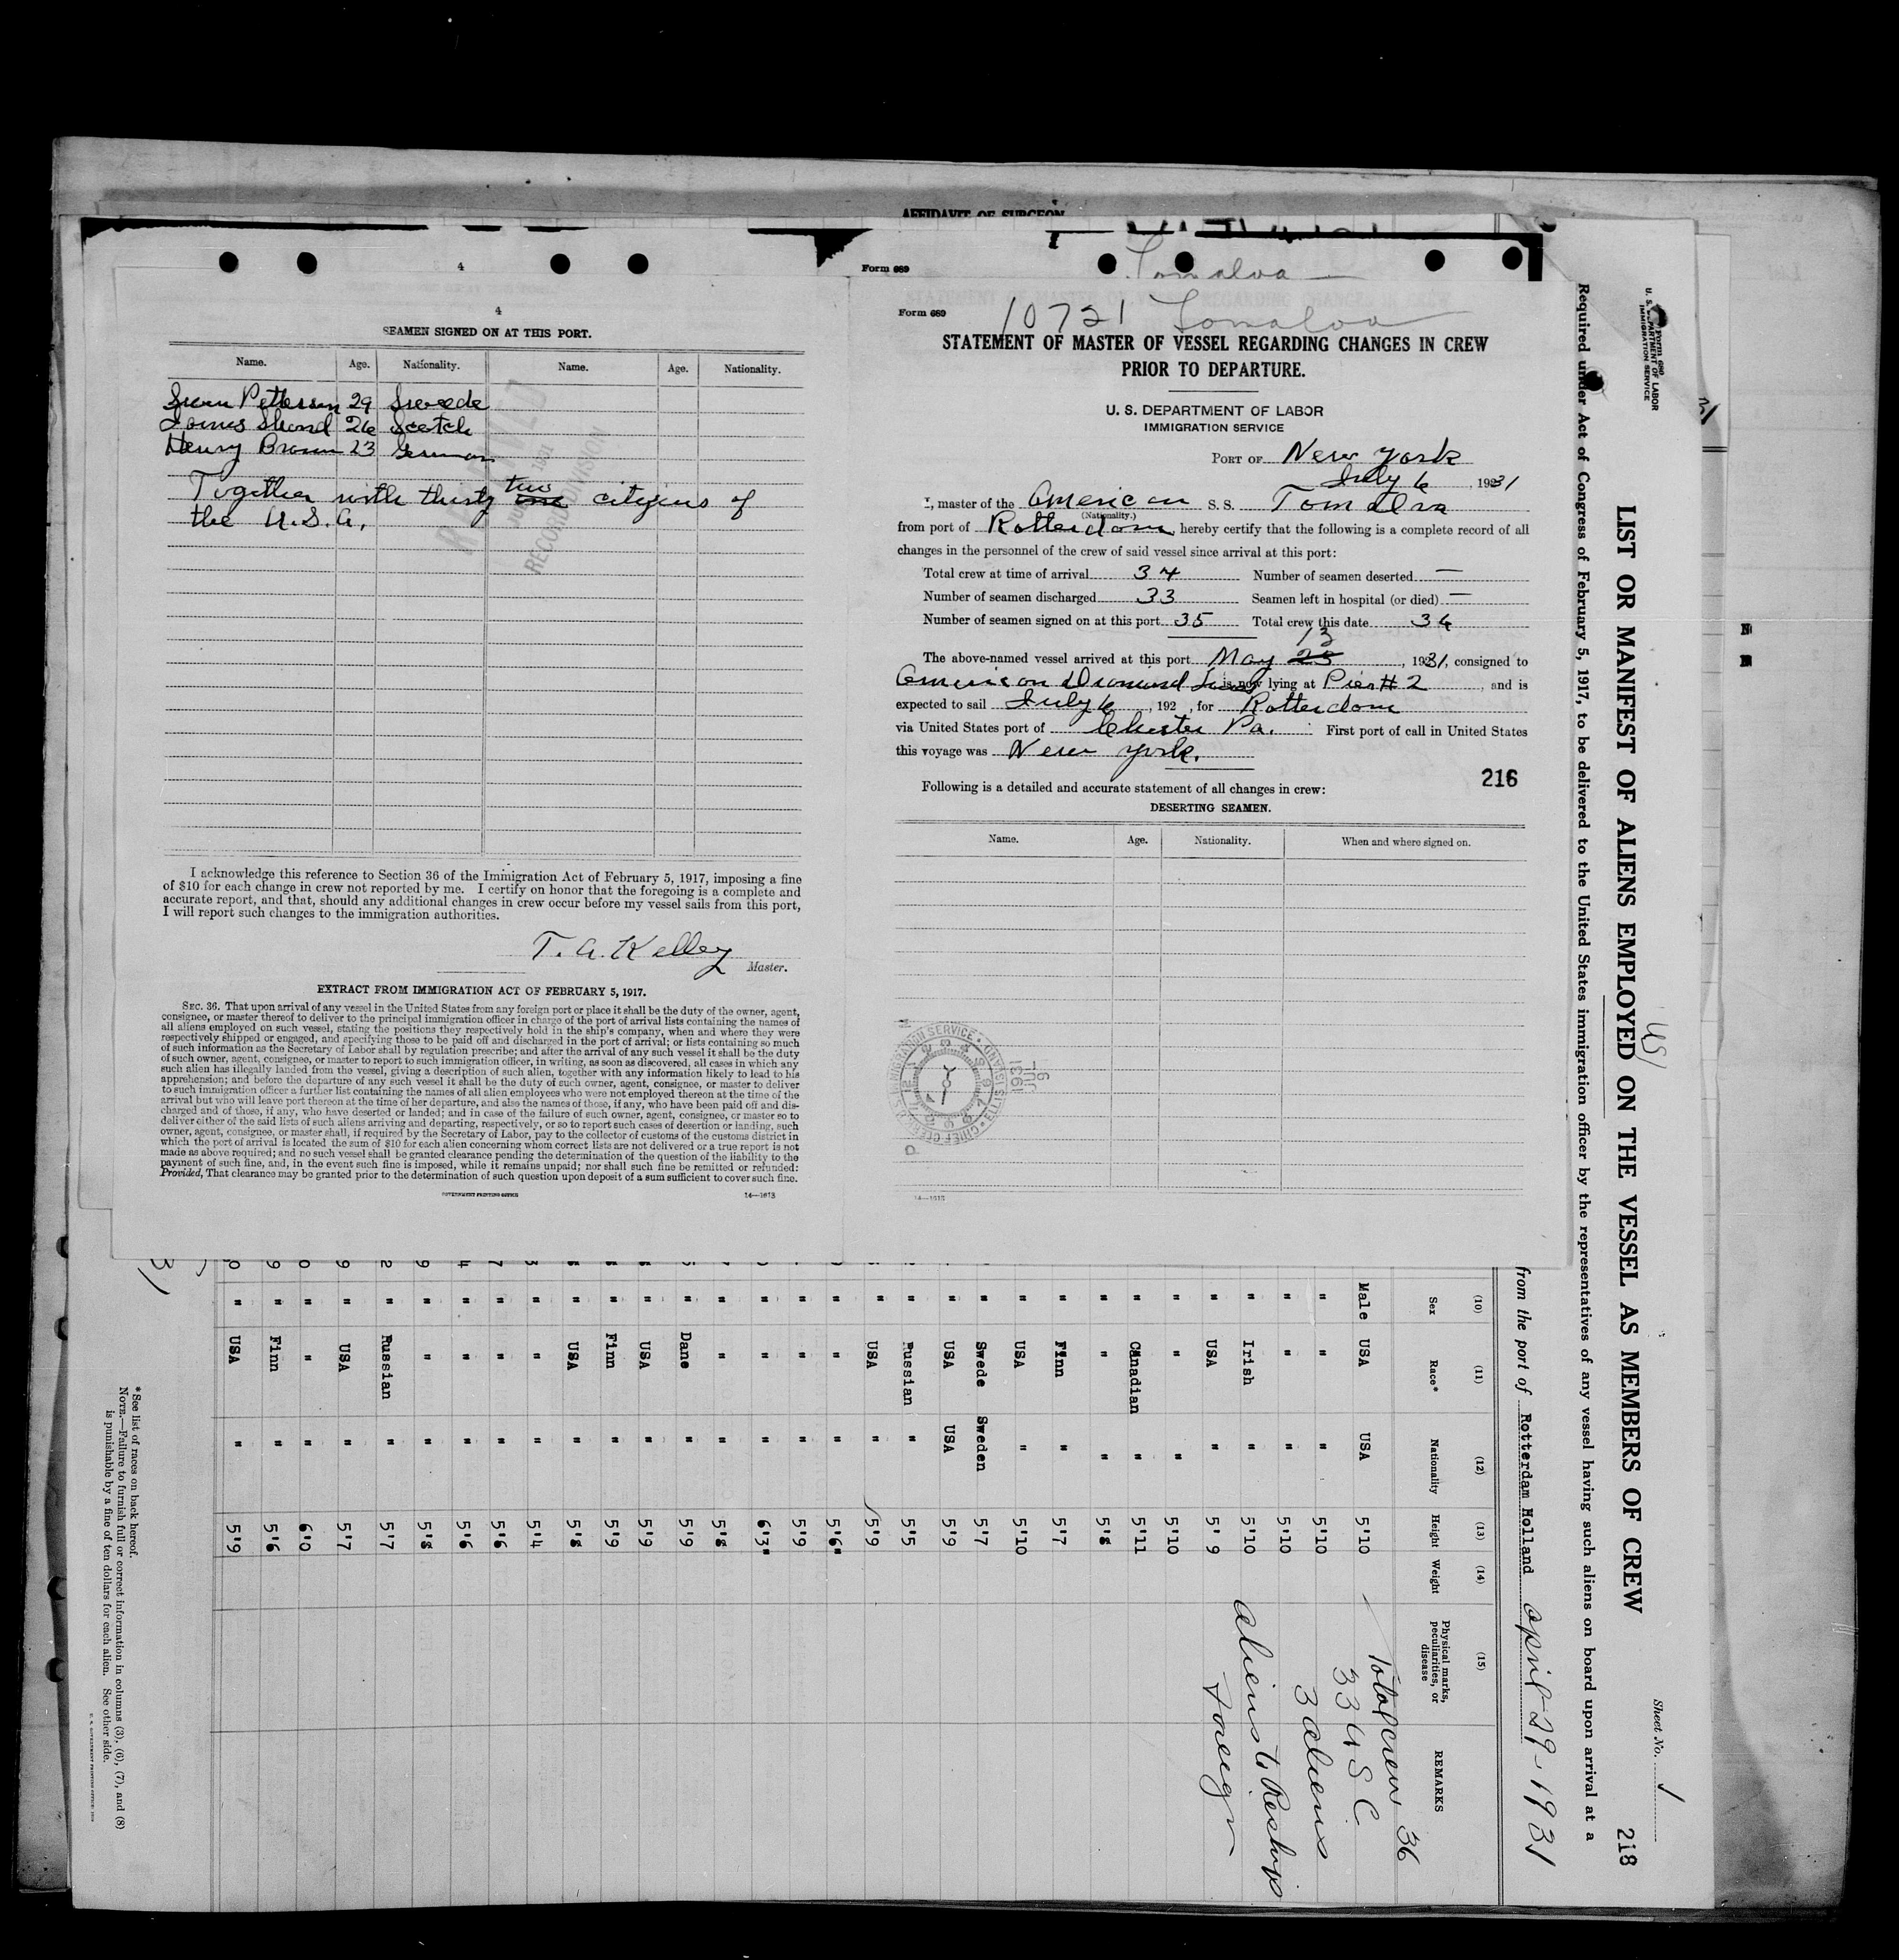 AFFIDAVIT OF SURGEON
4
4
SEAMEN SIGNED ON AT THIS PORT.
Name. Age. Nationality. Name. Age. Nationality.
Petterson 29 Swede
James Shand 26 Scotch
Henry Braun 23 German
Together with thirty two one citizens of
the U.S.A.
RECORD DIVISION
I acknowledge this reference to Section 36 of the Immigration Act of February 5, 1917, imposing a fine
of $10 for each change in crew not reported by me. I certify on honor that the foregoing is a complete and
accurate report, and that, should any additional changes in crew occur before my vessel sails from this port,
I will report such changes to the immigration authorities.
T. A. Kelley
Master.
EXTRACT FROM IMMIGRATION ACT OF FEBRUARY 5, 1917.
SEC. 36. That upon arrival of any vessel in the United States from any foreign port or place it shall be the duty of the owner, agent,
consignee, or master thereof to deliver to the principal immigration officer in charge of the port of arrival lists containing the names of
all aliens employed on such vessel, stating the positions they respectively hold in the ship's company, when and where they were
respectively shipped or engaged, and specifying those to be paid off and discharged in the port of arrival; or lists containing so much
of such information as the Secretary of Labor shall by regulation prescribe; and after the arrival of any such vessel it shall be the duty
of such owner, agent, consignee, or master to report to such immigration officer, in writing, as soon as discovered, all cases in which any
such alien has illegally landed from the vessel, giving a description of such alien, together with any information likely to lead to his
apprehension; and before the departure of any such vessel it shall be the duty of such owner, agent, consignee, or master to deliver
to such immigration officer a further list containing the names of all alien employees who were not employed thereon at the time of the
arrival but who will leave port thereon at the time of her departure, and also the names of those, if any, who have been paid off and dis-
charged and of those, if any, who have deserted or landed; and in case of the failure of such owner, agent, consignee, or master so to
deliver either of the said lists of such aliens arriving and departing, respectively, or so to report such cases of desertion or landing, such
owner, agent, consignee, or master shall, if required by the Secretary of Labor, pay to the collector of customs of the customs district in
which the port of arrival is located the sum of $10 for each alien concerning whom correct lists are not delivered or a true report is not
made as above required; and no such vessel shall be granted clearance pending the determination of the question of the liability to the
payment of such fine, and, in the event such fine is imposed, while it remains unpaid; nor shall such fine be remitted or refunded:
Provided, That clearance may be granted prior to the determination of such question upon deposit of a sum sufficient to cover such fine.
GOVERNMENT PRINTING OFFICE 14—1613
Form 689
Tomalva
Form 689 10721 Tomalva
STATEMENT OF MASTER OF VESSEL REGARDING CHANGES IN CREW
PRIOR TO DEPARTURE.
U. S. DEPARTMENT OF LABOR
IMMIGRATION SERVICE
PORT OF New York
July 6, 1931
I, master of the American S. S. Tomalva
(Nationality.)
from port of Rotterdam, hereby certify that the following is a complete record of all
changes in the personnel of the crew of said vessel since arrival at this port:
Total crew at time of arrival 34 Number of seamen deserted —
Number of seamen discharged 33 Seamen left in hospital (or died) —
Number of seamen signed on at this port 35 Total crew this date 36
13
The above-named vessel arrived at this port May 25, 1931, consigned to
American Diamond Lines is now lying at Pier # 2, and is
expected to sail July 6, 192 , for Rotterdam
via United States port of Chester Pa. First port of call in United States
this voyage was New York.
216
Following is a detailed and accurate statement of all changes in crew:
DESERTING SEAMEN.
Name. Age. Nationality. When and where signed on.
IMMIGRATION SERVICE ELLIS ISLAND CHIEF CLERK
JUL 6 1931
14—1613
Form 680
U. S. DEPARTMENT OF LABOR
IMMIGRATION SERVICE
Sheet No. 1
218
LIST OR MANIFEST OF ALIENS EMPLOYED ON THE VESSEL AS MEMBERS OF CREW
US
Required under Act of Congress of February 5, 1917, to be delivered to the United States immigration officer by the representatives of any vessel having such aliens on board upon arrival at a
from the port of Rotterdam Holland April 29-1931
(10) (11) (12) (13) (14) (15)
Sex Race* Nationality Height Weight Physical marks, peculiarities, or disease REMARKS
Male USA USA 5'10
" " " 5'10
" " " 5'10
" Irish " 5'10
" USA " 5' 9
" " " 5'10
" Canadian " 5'11
" " " 5'8
" Finn " 5'7
" USA " 5'10
" Swede Sweden 5'7
" USA USA 5'9
" Russian " 5'5
" USA " 5'9
" " " 5'6"
" " " 5'9
" " " 6'3"
" " " 5'8
" Dane " 5'9
" USA " 5'9
" Finn " 5'9
" USA " 5'8
" " " 5'4
" " " 5'6
" " " 5'6
" " " 5'8
" Russian " 5'7
" USA " 5'7
" " " 6'0
" Finn " 5'6
" USA " 5'9
Total crew 36
33 U S C
3 aliens
aliens to Reship
Foreign
*See list of races on back hereof.
NOTE.—Failure to furnish full or correct information in columns (3), (6), (7), and (8)
is punishable by a fine of ten dollars for each alien. See other side.